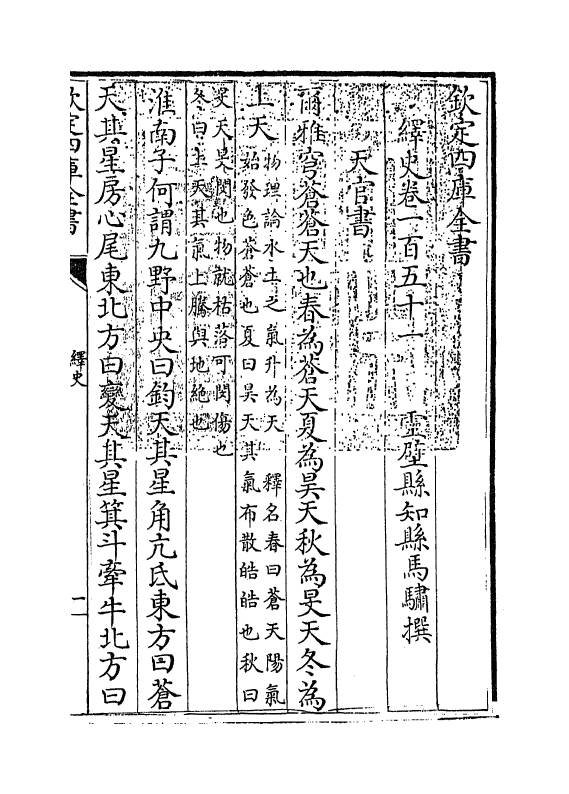 欽定四庫全書
繹史卷一百五十一　靈壁縣知縣馬驌撰
天官書
爾雅穹蒼蒼天也春為蒼天夏為昊天秋為旻天冬為
上天物理論水土之氣升為天　釋名春曰蒼天陽氣
始發色蒼蒼也夏曰昊天其氣布散皓皓也秋曰
旻天旻閔也物就枯落可閔傷也
冬曰上天其氣上騰與地絶也
淮南子何謂九野中央曰鈞天其星角亢氐東方曰蒼
天其星房心尾東北方曰變天其星箕斗牽牛北方曰
欽定四庫全書
繹史